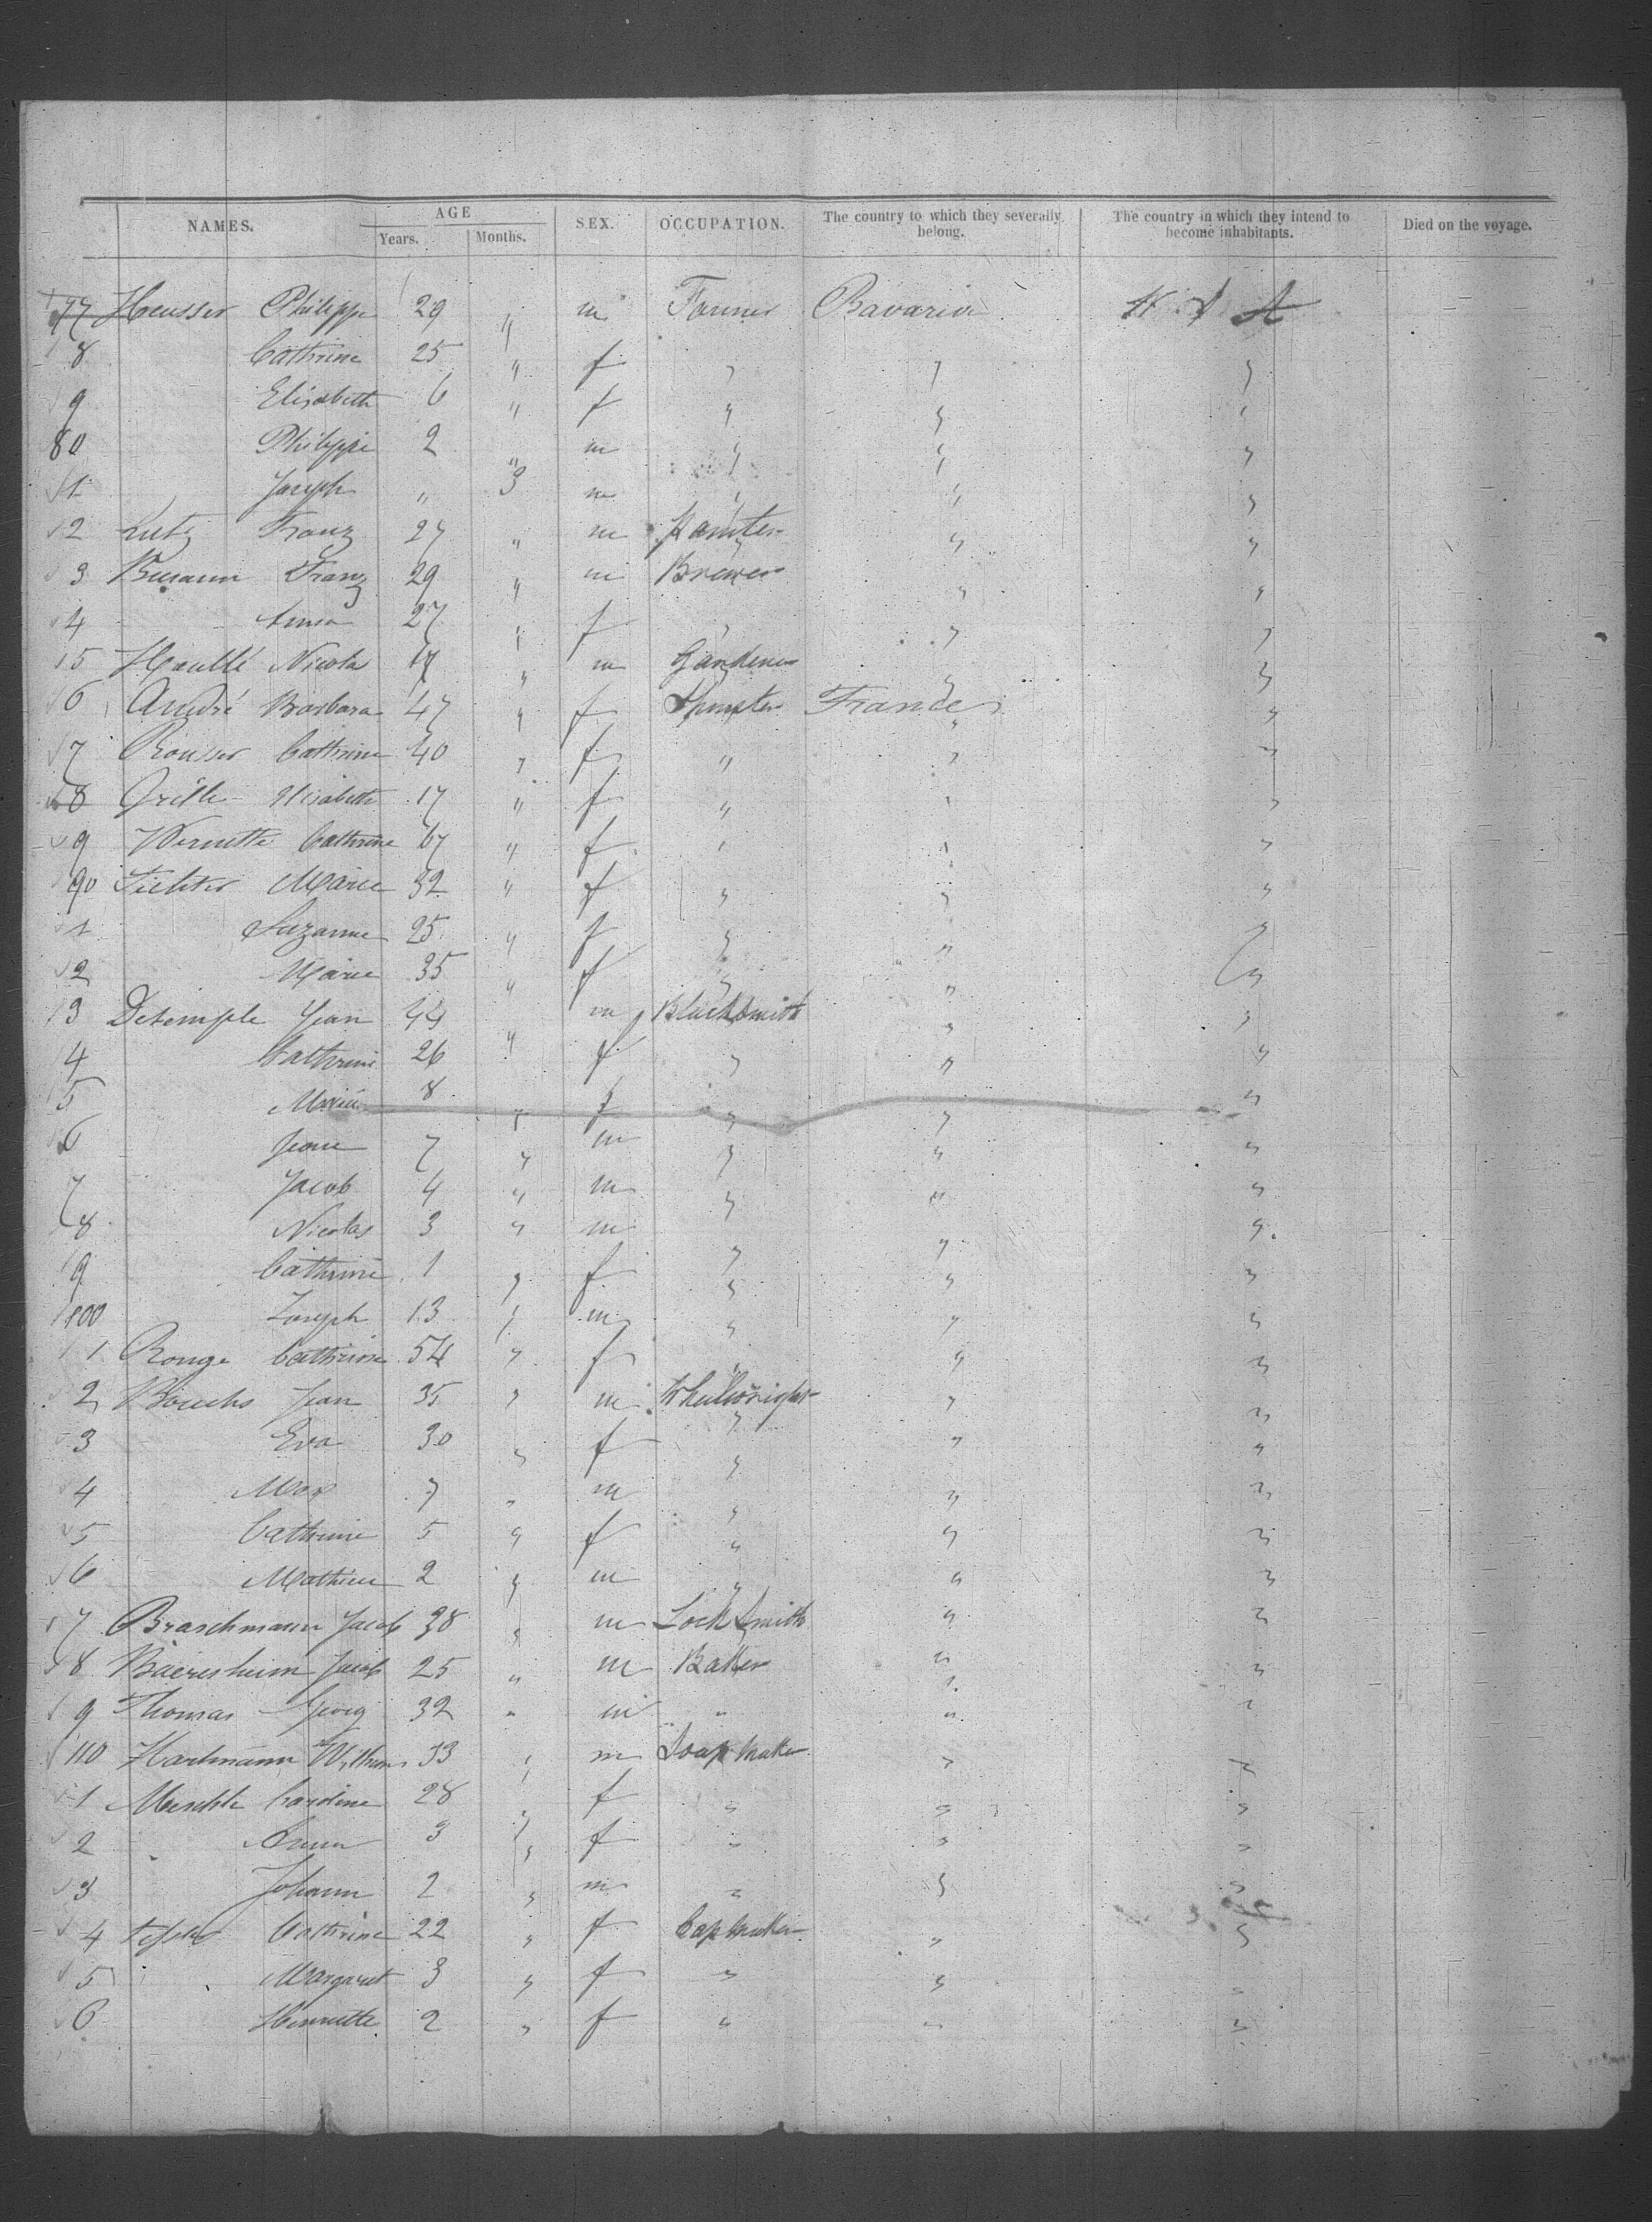 NAMES. AGE Years. Months. SEX. OCCUPATION. The country to which they severally belong. The country in which they intend to become inhabitants. Died on the voyage.
77 Heusser Philippe 29 " m Farmer Bavaria U S A
8 Cathrine 25 " f " " "
9 Elisabeth 6 " f " " "
80 Philippe 2 " m " " "
1 Joseph " 3 m " " "
2 Lutz Franz 27 " m " "
3 Franz 29 " m Brewer " "
4 Anna 27 " f " " "
5 Nicolas 17 " m Gardener " "
6 André Barbara 47 " f Spinster France "
7 Cathrine 40 " f " " "
8 Elisabeth 17 " f " " "
9 Cathrine 67 " f " " "
90 Marie 32 " f " " "
1 Suzanne 25 " f " " "
2 Marie 35 " f " " "
3 Detemple Jean 44 " m Blacksmith " "
4 Cathrine 26 " f " " "
5 Marie 8 " f " " "
6 Jean 7 " m " " "
7 Jacob 4 " m " " "
8 Nicolas 3 " m " " "
9 Cathrine 1 " f " " "
100 Joseph 13 " m " " "
1 Rouge Cathrine 54 " f " " "
2 Jean 35 " m Wheelwright " "
3 Eva 30 " f " " "
4 Max 7 " m " " "
5 Cathrine 5 " f " " "
6 Mathieu 2 " m " " "
7 Braschmann Jacob 38 " m Lock Smith " "
8 Jacob 25 " m Baker " "
9 Thomas Georg 32 " m " " "
110 Hartmann Wilhem 33 " m Soap Maker " "
1 Caroline 28 " f " " "
2 " Anna 3 " f " " "
3 Johann 2 " m " " "
4 Cathrine 22 " f Cap Maker " "
5 " Margaret 3 " f " " "
6 Henriette 2 " f " " "